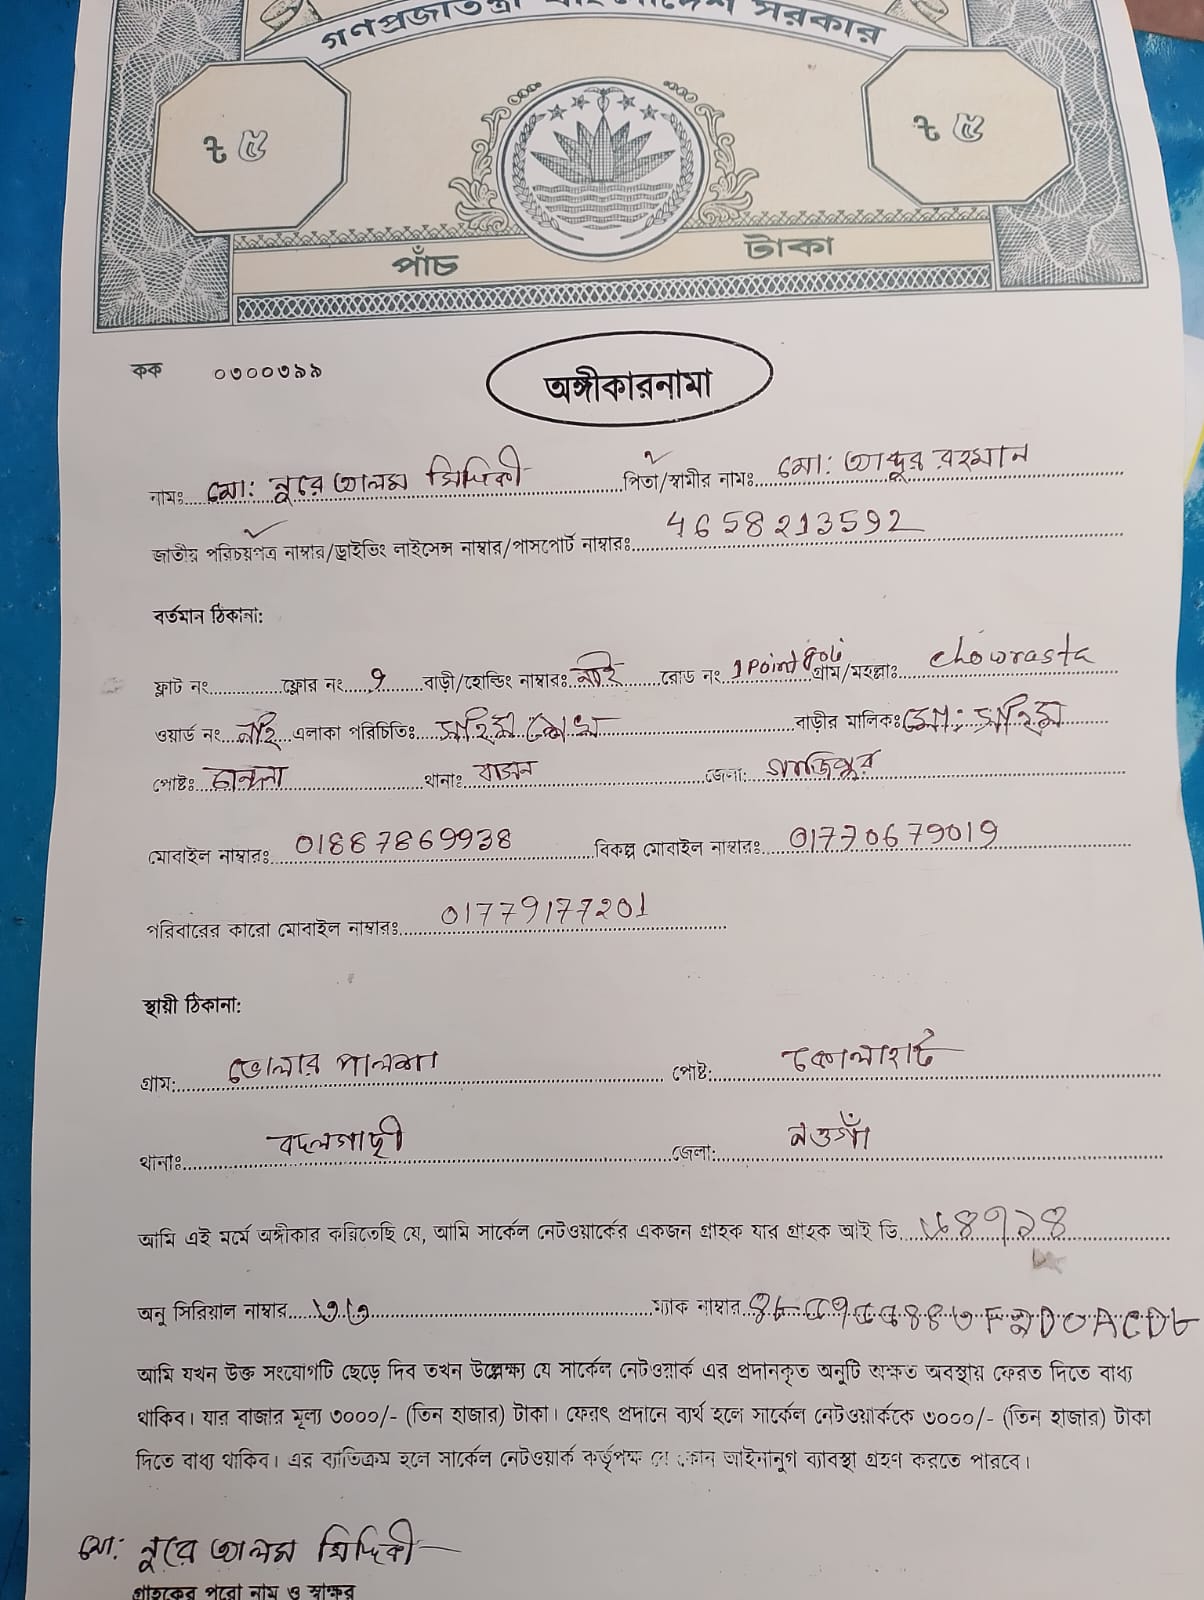 গণপ্রজাতন্ত্রী বাংলাদেশ সরকার
৳ ৫ ৳ ৫
পাঁচ টাকা
কক ০৩০০৩৯৯
অঙ্গীকারনামা
নামঃ মো: নূরে আলম সিদ্দিকী পিতা/স্বামীর নামঃ মো: আব্দুর রহমান
জাতীয় পরিচয়পত্র নাম্বার/ড্রাইভিং লাইসেন্স নাম্বার/পাসপোর্ট নাম্বারঃ 4658213592
বর্তমান ঠিকানা:
ফ্লাট নং ফ্লোর নং ১ বাড়ী/হোল্ডিং নাম্বারঃ নাই রোড নং 1 Point goli গ্রাম/মহল্লাঃ chowrasta
ওয়ার্ড নং নাই এলাকা পরিচিতিঃ বাড়ীর মালিকঃ মো:
পোষ্টঃ চান্দনা থানাঃ বাসন জেলা: গাজিপুর
মোবাইল নাম্বারঃ 01887869938 বিকল্প মোবাইল নাম্বারঃ 01770679019
পরিবারের কারো মোবাইল নাম্বারঃ 01779177201
স্থায়ী ঠিকানা:
গ্রাম: ভোলার পালশা পোষ্ট: কোলাহাট
থানাঃ বদলগাছী জেলা: নওগাঁ
আমি এই মর্মে অঙ্গীকার করিতেছি যে, আমি সার্কেল নেটওয়ার্কের একজন গ্রাহক যার গ্রাহক আই ডি.
অনু সিরিয়াল নাম্বার ম্যাক নাম্বার
আমি যখন উক্ত সংযোগটি ছেড়ে দিব তখন উল্লেক্ষ্য যে সার্কেল নেটওয়ার্ক এর প্রদানকৃত অনুটি অক্ষত অবস্থায় ফেরত দিতে বাধ্য
থাকিব। যার বাজার মূল্য ৩০০০/- (তিন হাজার) টাকা। ফেরৎ প্রদানে ব্যর্থ হলে সার্কেল নেটওয়ার্ককে ৩০০০/- (তিন হাজার) টাকা
দিতে বাধ্য থাকিব। এর ব্যতিক্রম হলে সার্কেল নেটওয়ার্ক কর্তৃপক্ষ যে কোন আইনানুগ ব্যাবস্থা গ্রহণ করতে পারবে।
মো: নূরে আলম সিদ্দিকী
গ্রাহকের পুরো নাম ও স্বাক্ষর